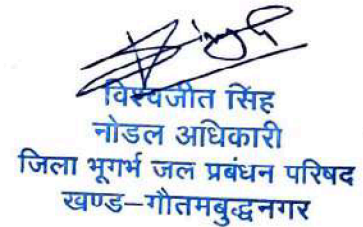 विश्वजीत सिंह
नोडल अधिकारी
जिला भूगर्भ जल प्रबंधन परिषद
खण्ड–गौतमबुद्धनगर